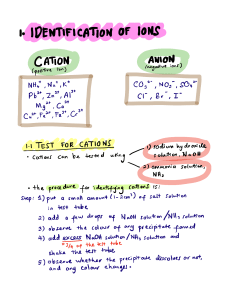 1. IDENTIFICATION OF IONS
CATION
(positive ion)
ANION
(negative ions)
NH₄⁺, Na⁺, K⁺
Pb²⁺, Zn²⁺, Al³⁺
Mg²⁺, Ca²⁺
Cu²⁺, Fe²⁺, Fe³⁺, Cr³⁺
CO₃²⁻, NO₃⁻, SO₄²⁻
Cl⁻, Br⁻, I⁻
1.1 TEST FOR CATIONS
• cations can be tested using
1) sodium hydroxide
solution, NaOH
2) ammonia solution,
NH₃
• the procedure for identifying cations is:
Step: 1) put a small amount (1-2cm³) of salt solution
in test tube
2) add a few drops of NaOH solution/NH₃ solution
3) observe the colour of any precipitate formed
4) add excess NaOH solution/NH₃ solution and
of the test tube
shake the test tube
5) observe whether the precipitate dissolves or not,
and any colour changes.